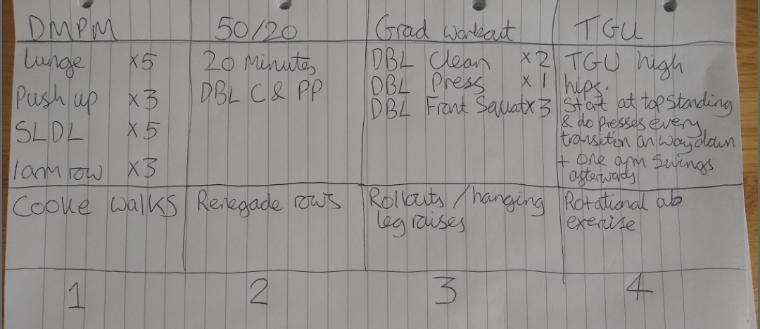 DMPM
Lunge x5
Push up x3
SLDL x5
1arm row x3
Cooke walks
1
50/20
20 Minutes
DBL C & PP
Renegade rows
2
Grad workout
DBL Clean x2
DBL Press x1
DBL Front Squat x3
Rollouts / hanging
leg raises
3
TGU
TGU high
hips.
Start at top standing
& do presses every
transition on way down
+ one arm swings
afterwards
Rotational ab
exercise
4